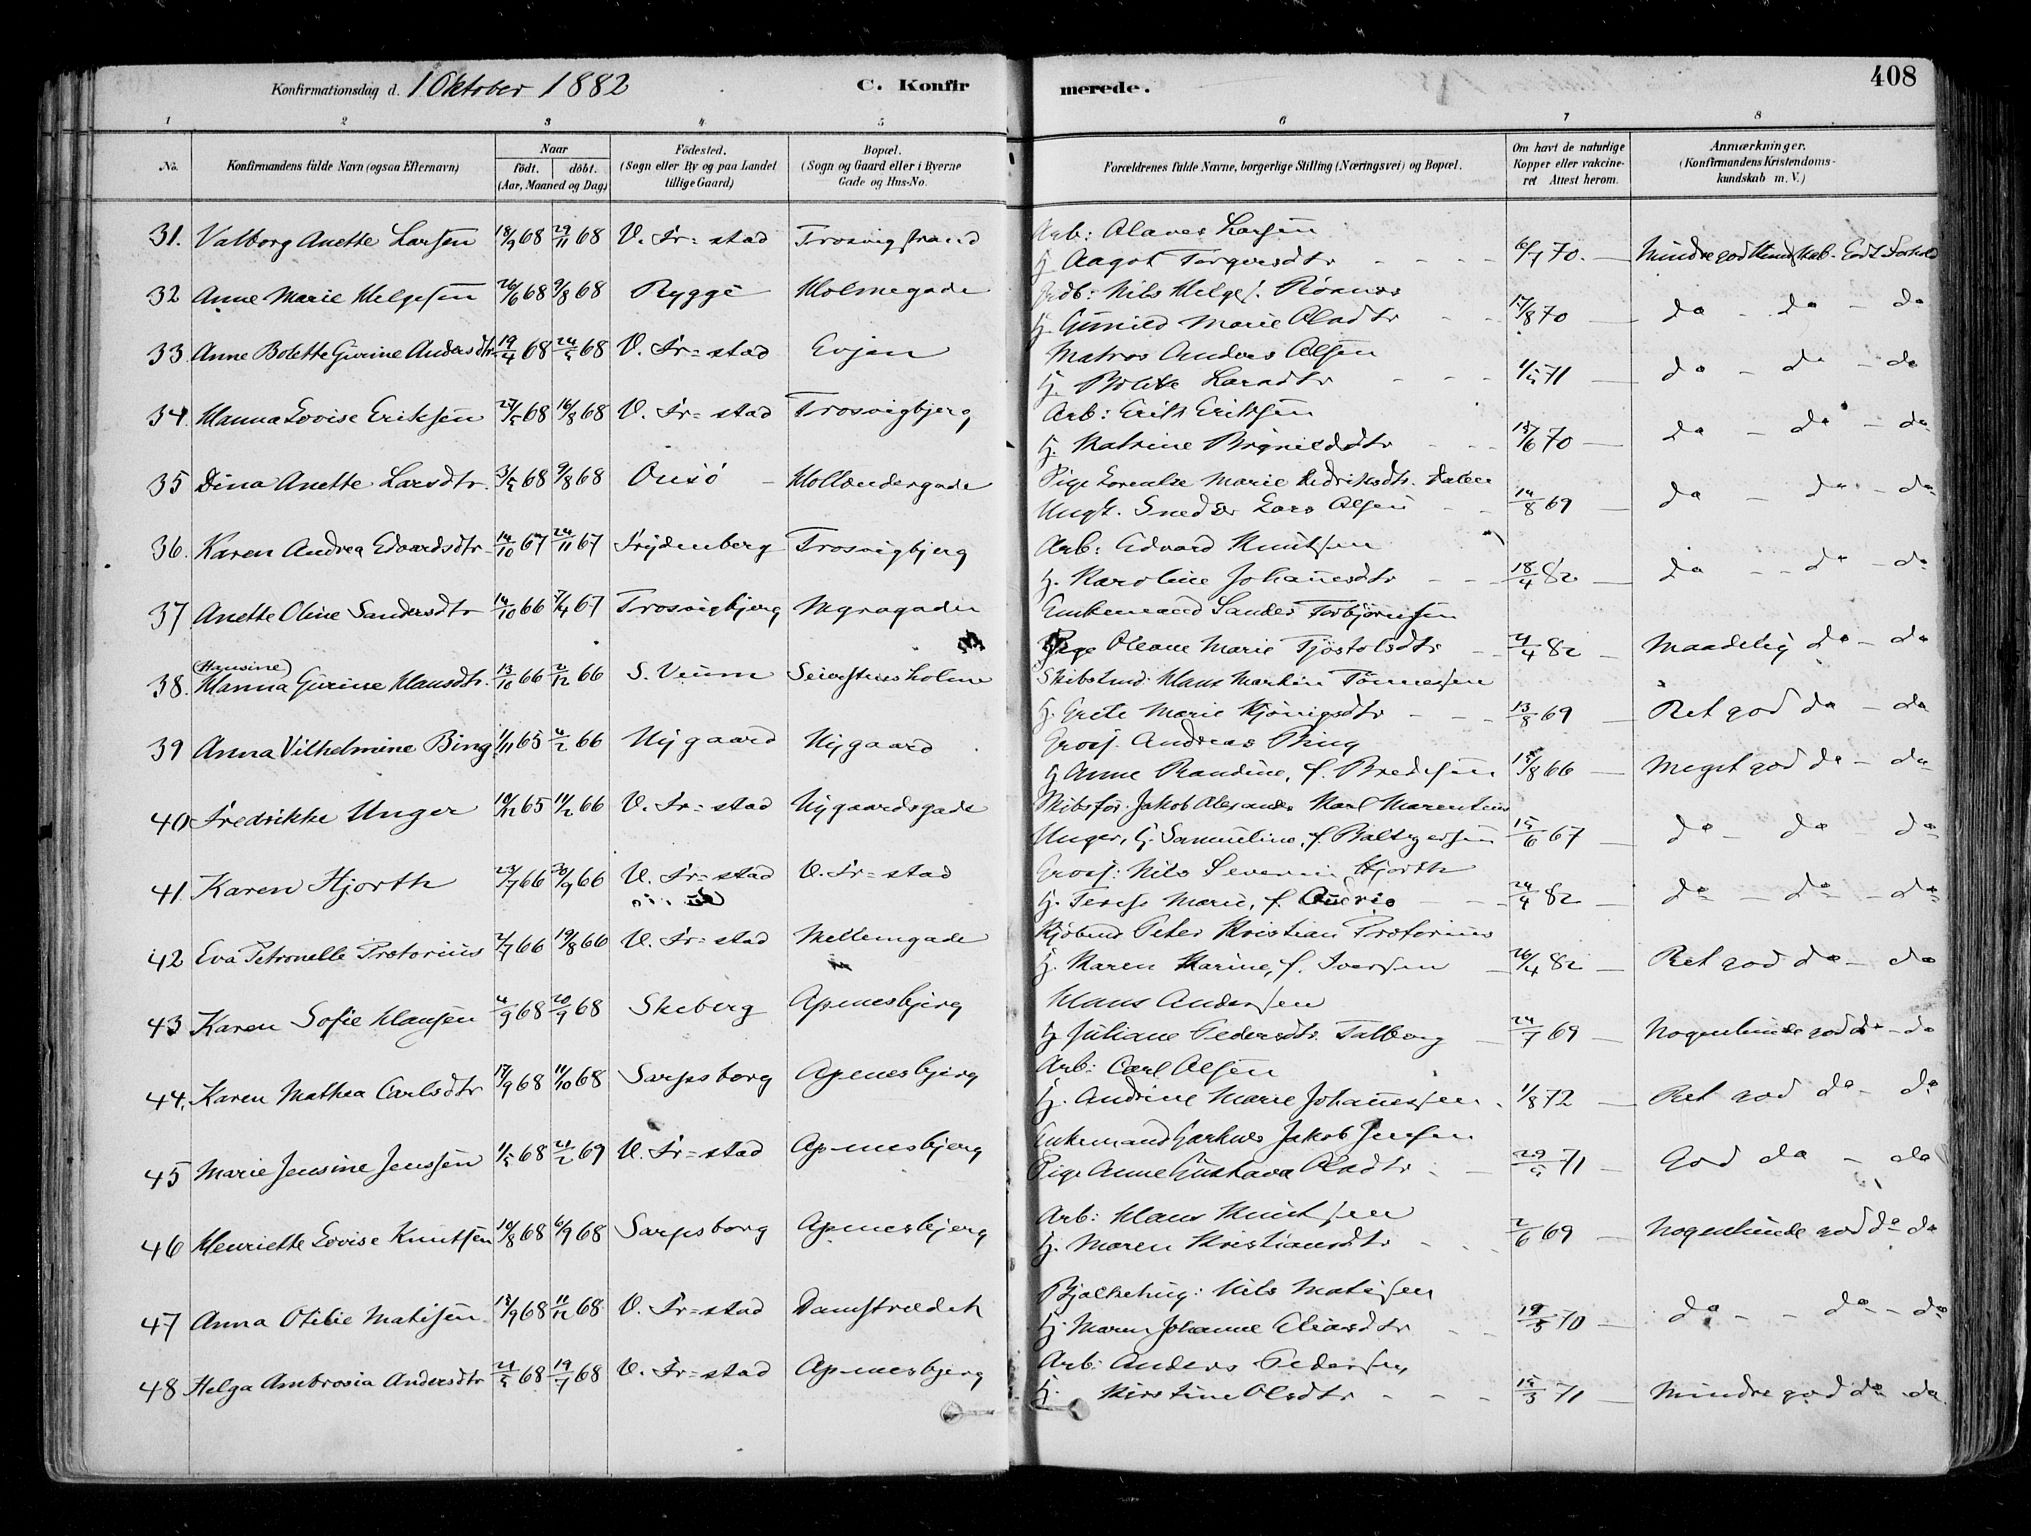 Konfirmationsdag d. 1 Oktober 1882 C. Konfir merede. 408
1 2 3 4 5 6 7 8
No. Konfirmandens fulde Navn (ogsaa Efternavn) Naar født. døbt. (Aar, Maaned og Dag) Fødested. (Sogn eller By og paa Landet tillige Gaard) Bopæl. (Sogn og Gaard eller i Byerne Gade og Hus-No. Forældrenes fulde Navne, borgerlige Stilling (Næringsvei) og Bopæl. Om havt de naturlige Kopper eller vakcineret Attest herom. Anmærkninger. (Konfirmandens Kristendomskundskab m. V.)
31. Valborg Anette Larsen 18/9 68 29/11 68 V. Fr=stad Trosvigstrand Arb: Olaves Larsen
H. Aagot Torgersdtr 6/7 70. Mindre god Kundskab. Godt Forhold
32 Anne Marie Helgesen 26/6 68 9/8 68 Rygge Holmegade Nils Helges. Roanes
H. Gunild Marie Olsdtr 17/8 70 do - do - do
33. Anne Bolette Gurine Andersdtr 19/4 68 24/5 68 V. Fr=stad Evjen Matros Anders Olsen
H. Bolette Larsdtr 1/5 71 do - do - do
34. Hanna Lovise Eriksen 27/5 68 16/8 68 V. Fr=stad Trosvigbjerg Arb: Erik Eriksen
H. Katrine Brynildsdtr 15/6 70 do - do - do
35 Dina Anette Larsdtr. 3/5 68 9/8 68 Onsø Hollændergade Pige Lorentse Marie Fredriksdtr.
Ungk. Snedker Lars Olsen 14/8 69 do - do - do
36. Karen Andrea Edvardsdtr 14/10 67 24/11 67 Frydenberg Trosvigbjerg Arb: Edvard Knutsen
H. Karoline Johannesdtr 18/4 82 do - do - do
37 Anette Oline Sandersdtr 14/10 66 7/4 67 Trosvigbjerg Myragaden Enkemand Sander Torbjørnsen
Pige Oleane Marie Tjøstolsdtr 21/4 82 Maadelig do - do
(Hansine)
38. Hanna Gurine Klausdtr. 13/10 66 2/12 66 S. Veum Seiersteens Holme Skibstmd. Klaus Martin Tønnesen
H. Grete Marie Kjønigsdtr 13/8 69 Ret god do - do
39 Anna Vilhelmine Bing 1/11 65 4/2 66 Nygaard Nygaard Gross. Andreas Bing
H. Anne Randine, f. Bredesen 15/8 66 Meget god do - do
40 Fredrikke Unger 10/12 65 11/2 66 V. Fr=stad Nygaardsgade Skibsfør. Jakob Alexander Karl Marentius
Unger, H. Samueline, f. Baltzersen 15/6 67 do - do do
41. Karen Hjorth 23/7 66 30/9 66 V. Fr=stad V. Fr=stad Gross: Nils Severin Hjorth
H. Terese Marie, f. 24/4 82 do - do - do
42 Eva Petronelle Prætorius 2/7 66 19/8 66 V. Fr=stad Mellemgade Kjøbmd Peter Kristian Prætorius
H. Karen Marine, f. Iversen 26/4 82 Ret god do - do
43 Karen Sofie Klausen 4/9 68 20/9 68 Skeberg Apenesbjerg Klaus Andersen
H. Juliane Pedersdtr. Talberg 24/7 69 Nogenlunde god do - do
44. Karen Mathea Carlsdtr 17/9 68 11/10 68 Sarpsborg Apenesbjerg Arb: Carl Olsen
H. Andrine Marie Johannessen 1/8 72 Ret god do - do
45 Marie Jensine Jenssen 1/5 68 21/2 69 V. Fr=stad Apenesbjerg Enkemand Jakob Jensen
Pige Anne Gustava Olsdtr 29/5 71 God do - do
46 Henriette Lovise Knutsen 10/8 68 6/9 68 Sarpsborg Apenesbjerg Arb: Klaus Knutsen
H. Maren Kristiansdtr 2/6 69 Nogenlunde god do do
47 Anna Otilie Matisen 18/9 68 11/12 68 V. Fr=stad Damstrædet Nils Matisen
H. Maren Johanne Eliasdtr 19/5 70 do - - do - do
48 Helga Ambrosia Andersdtr 21/5 68 19/7 68 V. Fr=stad Apenesbjerg Arb: Anders Pedersen
H. Kirstine Olsdtr 15/3 71 Mindre god do do